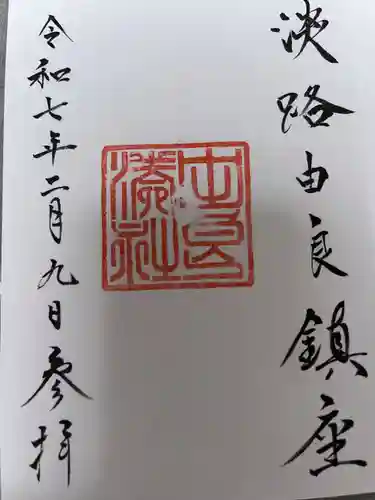 淡路由良鎮座
由良湊神社
令和七年二月九日参拝